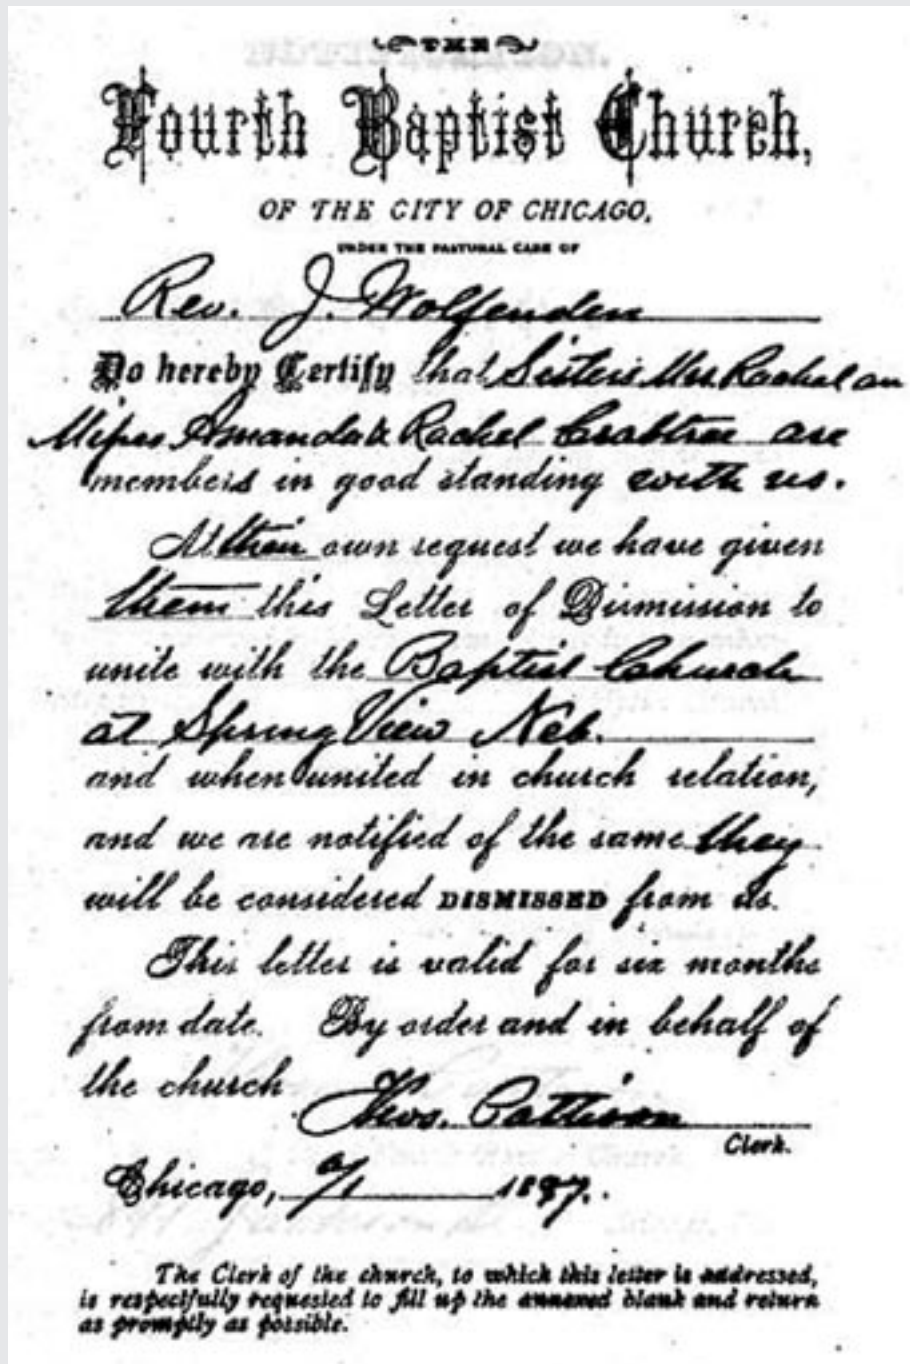 THE
Fourth Baptist Church,
OF THE CITY OF CHICAGO,
UNDER THE PASTORAL CARE OF
Rev. J. Wolfenden
Do hereby Certify that Sisters Mrs. Rachel an
Misses Amanda & Rachel Crabtree are
members in good standing with us.
At their own request we have given
them this Letter of Dismission to
unite with the Baptist Church
at Spring View Neb.
and when united in church relation,
and we are notified of the same they
will be considered DISMISSED from us.
This letter is valid for six months
from date. By order and in behalf of
the church
Thos. Pattison
Clerk.
Chicago, 1897.
The Clerk of the church, to which this letter is addressed,
is respectfully requested to fill up the annexed blank and return
as promptly as possible.